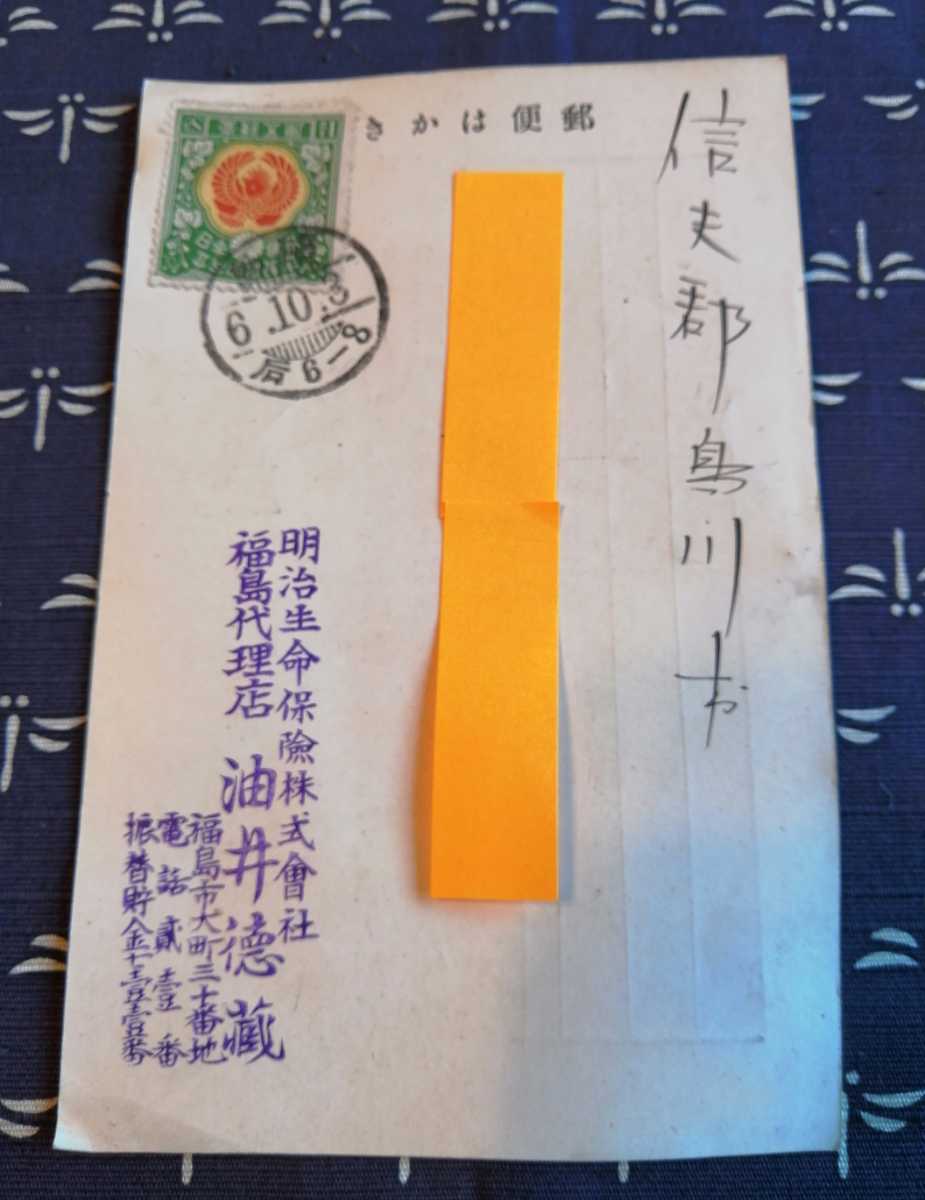 郵便はかき
信夫郡鳥川村
6.10.3
后6-8
明治生命保險株式會社
福島代理店 油井德藏
福島市大町三十番地
電話貳壹番
振替貯金壹壹番